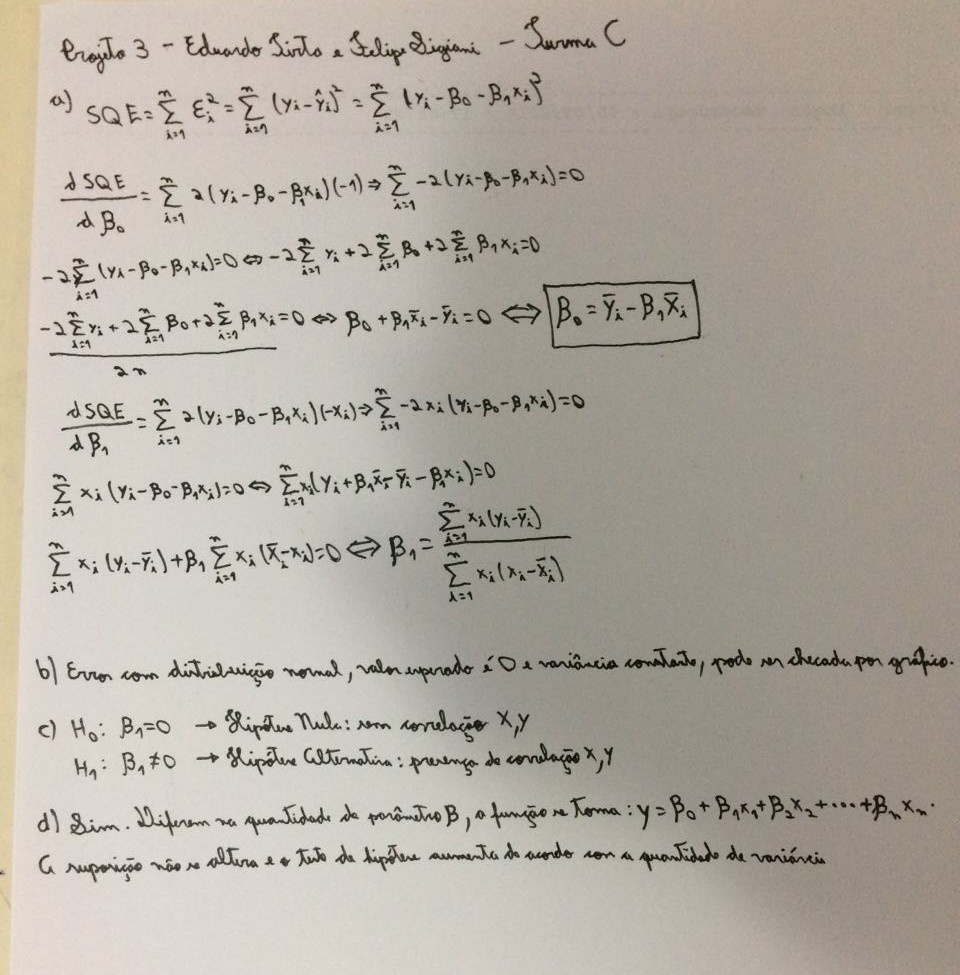 Projeto 3 - Eduardo Tirta e Felipe Sigiani - Turma C
a) SQE = Σ_{i=1}^{n} ε_i² = Σ_{i=1}^{n} (y_i - Ŷ_i)² = Σ_{i=1}^{n} (y_i - β₀ - β₁x_i)²
dSQE/dβ₀ = Σ_{i=1}^{n} 2(y_i - β₀ - β₁x_i)(-1) ⇒ Σ_{i=1}^{n} -2(y_i - β₀ - β₁x_i) = 0
-2Σ_{i=1}^{n} (y_i - β₀ - β₁x_i) = 0 ⇔ -2Σ_{i=1}^{n} y_i + 2Σ_{i=1}^{n} β₀ + 2Σ_{i=1}^{n} β₁x_i = 0
(-2Σ_{i=1}^{n} y_i + 2Σ_{i=1}^{n} β₀ + 2Σ_{i=1}^{n} β₁x_i = 0)/2n ⇔ β₀ + β₁x̄_i - ȳ_i = 0 ⇔ β₀ = ȳ_i - β₁x̄_i
dSQE/dβ₁ = Σ_{i=1}^{n} 2(y_i - β₀ - β₁x_i)(-x_i) ⇒ Σ_{i=1}^{n} -2x_i(y_i - β₀ - β₁x_i) = 0
Σ_{i=1}^{n} x_i(y_i - β₀ - β₁x_i) = 0 ⇔ Σ_{i=1}^{n} x_i(y_i + β₁x̄_i - ȳ_i - β₁x_i) = 0
Σ_{i=1}^{n} x_i(y_i - ȳ_i) + β₁ Σ_{i=1}^{n} x_i(x̄_i - x_i) = 0 ⇔ β₁ = Σ_{i=1}^{n} x_i(y_i - ȳ_i) / Σ_{i=1}^{n} x_i(x_i - x̄_i)
b) Erros com distribuição normal, valor esperado é 0 e variância constante, pode ser checada por gráfico.
c) H₀: β₁=0 → Hipótese Nula: sem correlação X,Y
H₁: β₁≠0 → Hipótese Alternativa: presença de correlação X,Y
d) Sim. Diferem na quantidade de parâmetro β, a função se torna: y = β₀ + β₁x₁ + β₂x₂ + ... + βₙxₙ.
A suposição não se altera e o teste de hipótese aumenta de acordo com a quantidade de variáveis